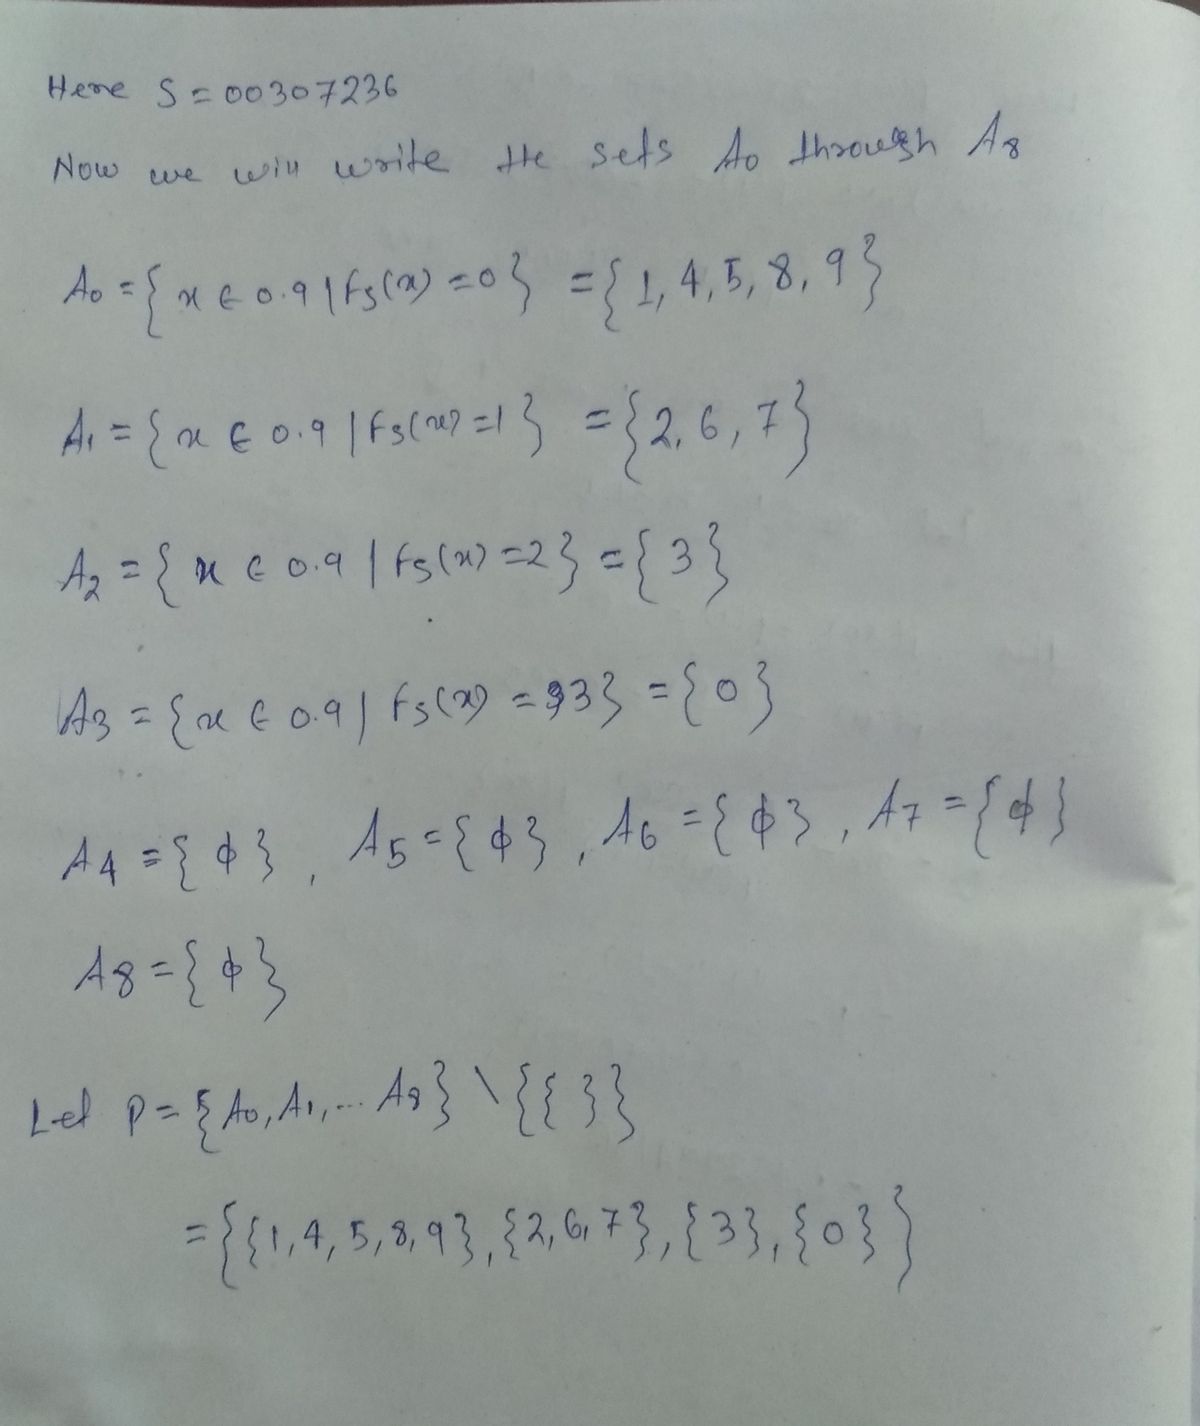 Here S = 00307236
Now we will write the sets A₀ through A₈
A₀ = { x ∈ 0.9 | fs(x) = 0 } = { 1, 4, 5, 8, 9 }
A₁ = { x ∈ 0.9 | fs(x) = 1 } = { 2, 6, 7 }
A₂ = { x ∈ 0.9 | fs(x) = 2 } = { 3 }
A₃ = { x ∈ 0.9 | fs(x) = 3 } = { 0 }
A₄ = { ϕ } , A₅ = { ϕ } , A₆ = { ϕ } , A₇ = { ϕ }
A₈ = { ϕ }
Let P = { A₀, A₁, ... A₈ } \ { { } }
= { { 1, 4, 5, 8, 9 }, { 2, 6, 7 }, { 3 }, { 0 } }